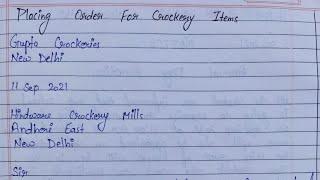 Placing Order For Crockery Items
Gupta Crockeries
New Delhi
11 Sep 2021
Hindware Crockery Mills
Andheri East
New Delhi
Sir